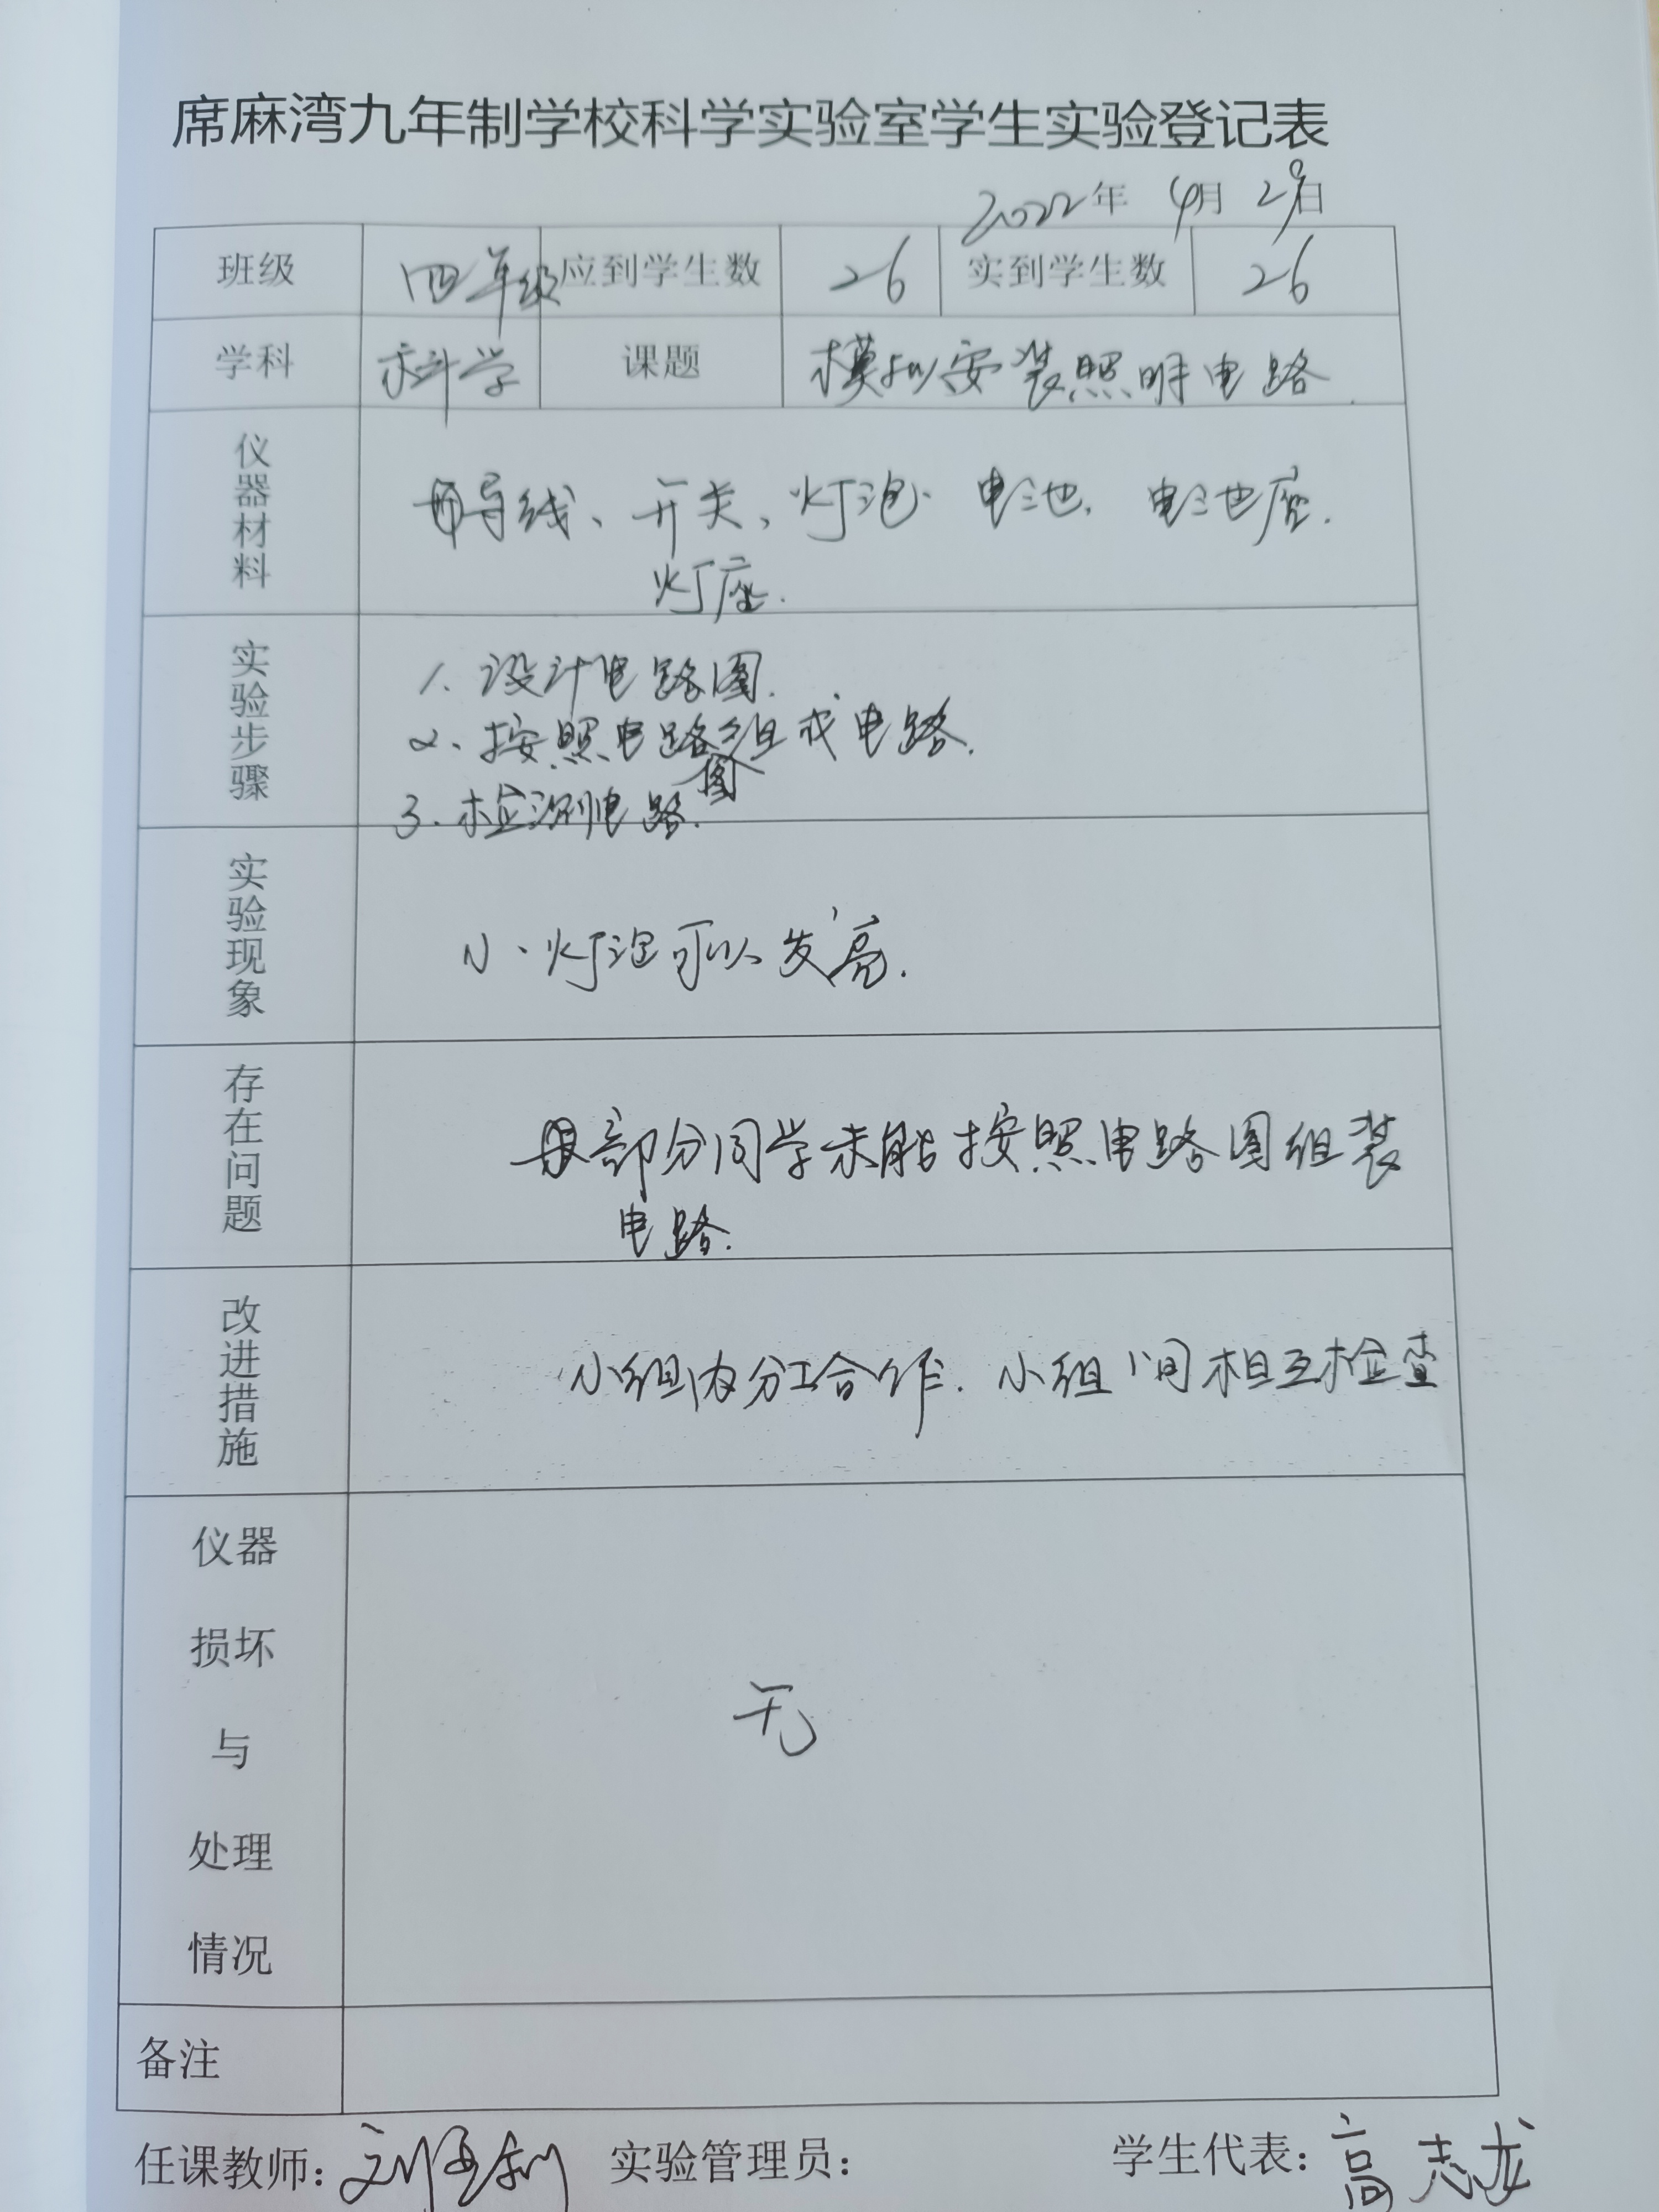 席麻湾九年制学校科学实验室学生实验登记表
2022年 4月 29日
班级 四年级 应到学生数 26 实到学生数 26
学科 科学 课题 模拟安装照明电路.
仪器材料
导线、开关、灯泡、电池、电池座.
灯座.
实验步骤
1、设计电路图.
2、按照电路图组成电路.
3、检测电路.
实验现象
小灯泡可以发亮.
存在问题
部分同学未能按照电路图组装
电路.
改进措施
小组内分工合作.小组间相互检查
仪器
损坏
与
处理
情况
无
备注
任课教师: 刘 实验管理员: 学生代表: 高志龙